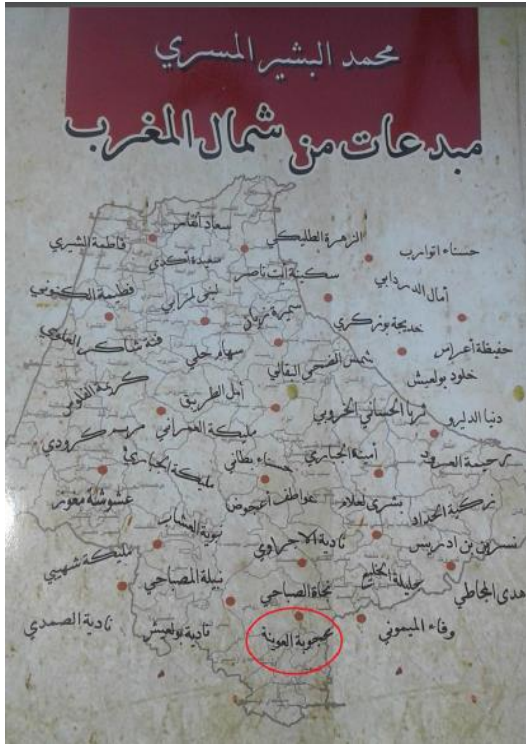 محمد البشير المسري
مبدعات من شمال المغرب
سعاد أنقار
فاطمة الشيري
الزهرة الطليكي
حسناء اتوارب
سعيدة أكدي
سكينة ايت ناصر
آمال الدردابي
فطيمة الكنوني
لبنى لمرابي
سميرة زيان
خديجة بونركري
حفيظة أعراس
سهام حلي
شمس الضحى البقالي
خلود بولعيش
كريمة
أمل الطريبق
ثريا الحساني الخروبي
دنيا الدليرو
مريم كرودي
مليكة العمراني
أمينة الجباري
رحيمة
مليكة الجباري
حسناء بطاني
عشوشة مغوز
عواطف أعيجوض
بشرى لعلام
زكية الحداد
نبوية العشاب
نادية الاجراوي
نسرين بن ادريس
مليكة شهيبي
نبيلة المصباحي
نجاة الصباحي
جليلة الخليع
هدى المجاطي
نادية الصمدي
نادية بولعيش
محجوبة العوينة
وفاء الميموني